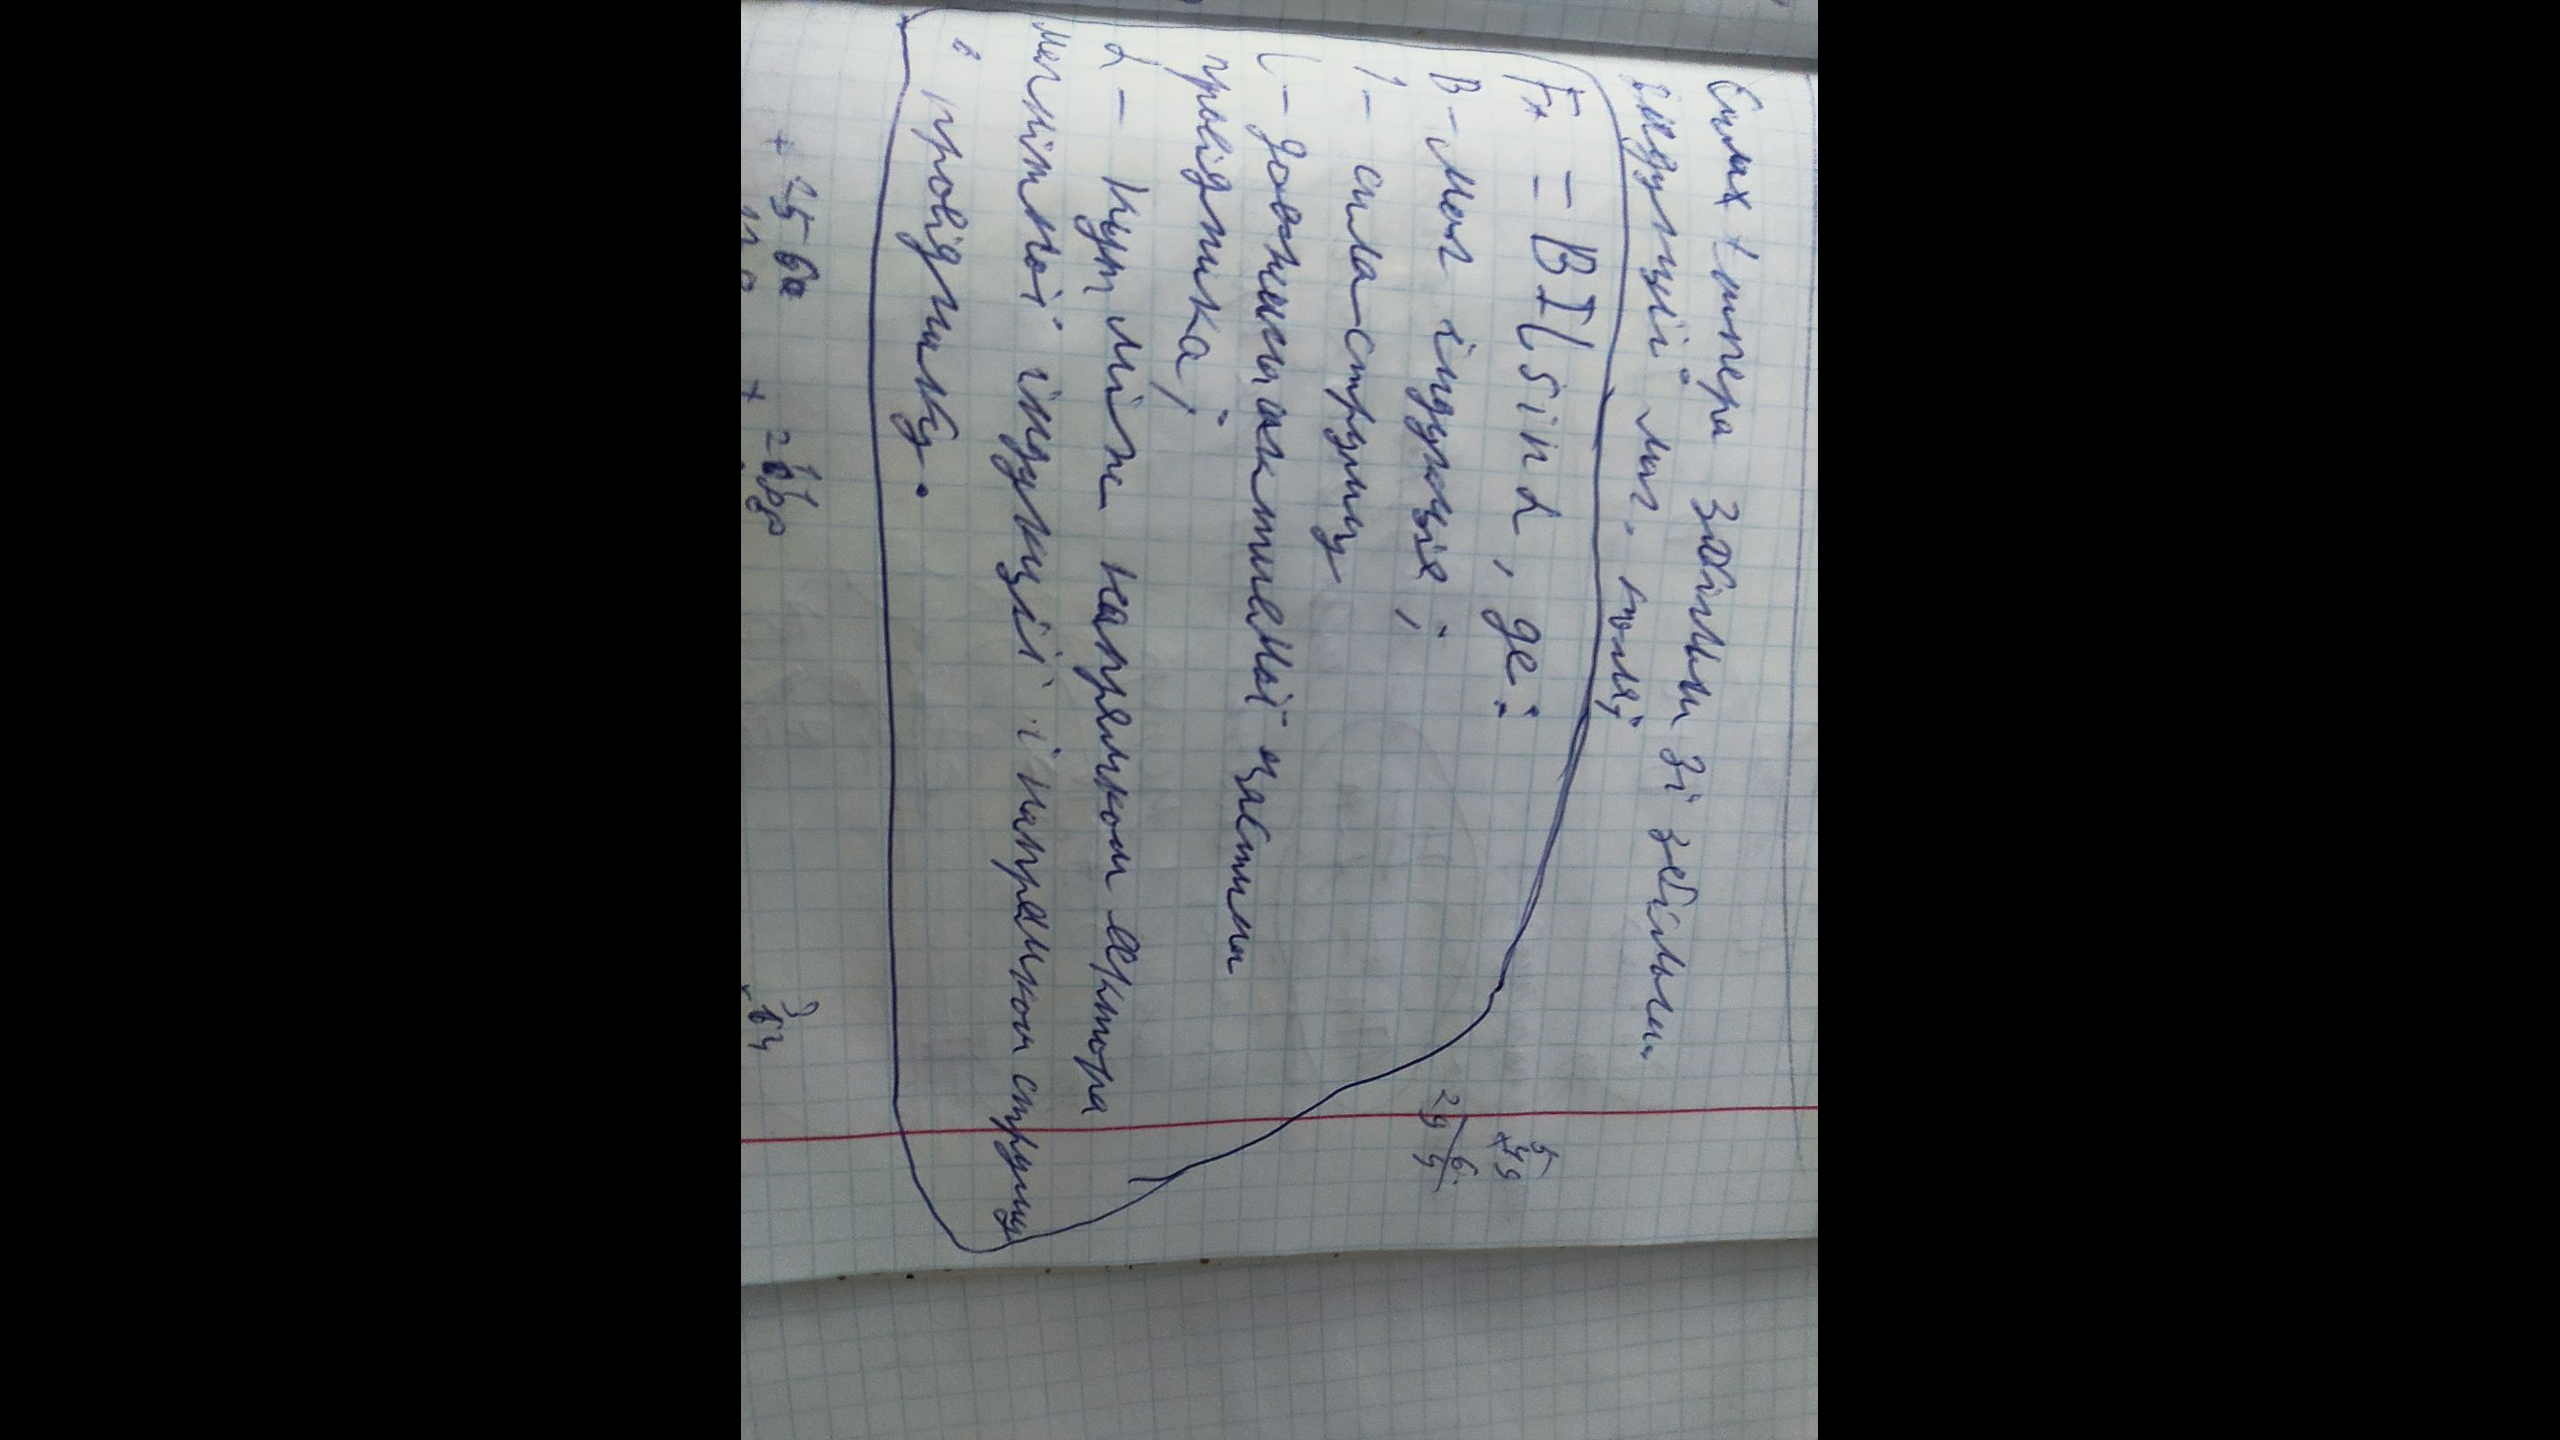 Сила Ампера збільш зі збільш.
індукції маг. поля;
FA = BIl sin α, де:
B - маг індукція;
I - сила струму
l - довжина активної частини
провідника;
α - кут між напрямком вектора
магнітної індукції і напрямком струму
в провіднику.
5
× 49
6
294
+ 256
+ 2
3
64